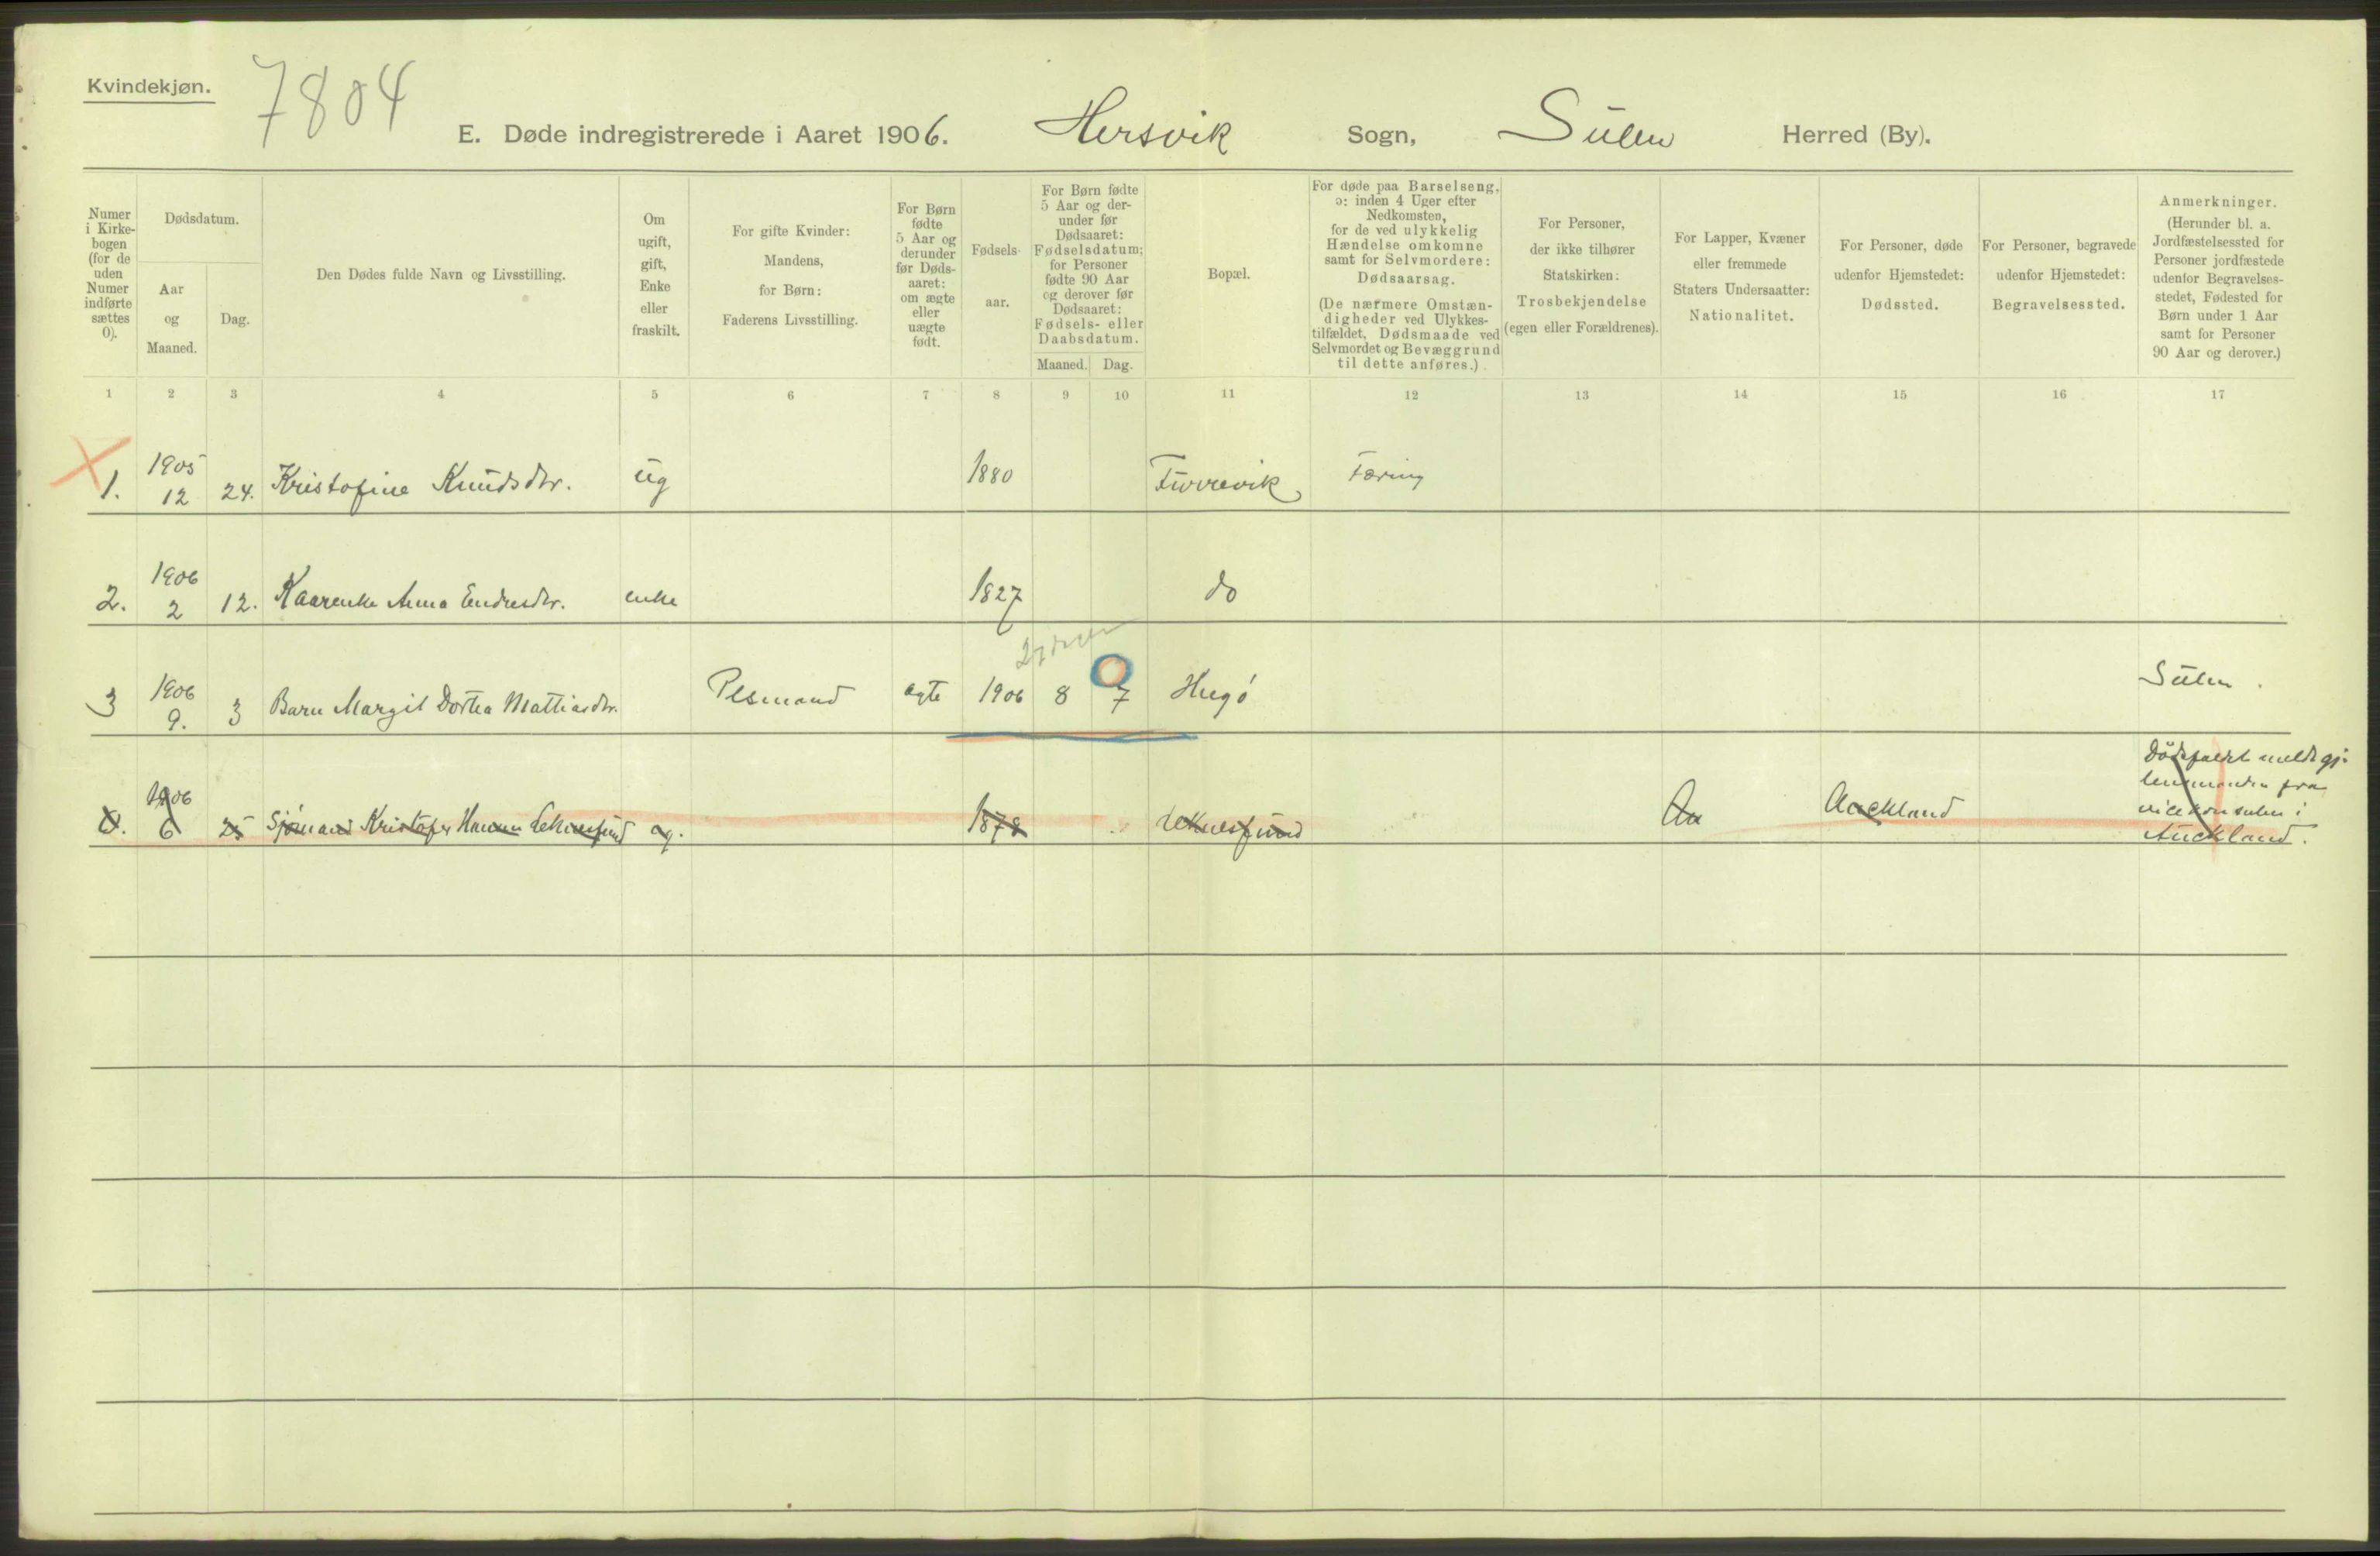 Kvindekjøn.
7804
E. Døde indregistrerede i Aaret 1906. Hersvik Sogn, Sulen Herred (By).
Numer i Kirkebogen (for de uden Numer indførte sættes 0).
Dødsdatum.
Aar og Maaned.
Dag.
Den Dødes fulde Navn og Livsstilling.
Om ugift, gift, Enke eller fraskilt.
For gifte Kvinder: Mandens, for Børn: Faderens Livsstilling.
For Børn fødte 5 Aar og derunder før Dødsaaret: om ægte eller uægte født.
Fødselsaar.
For Børn fødte 5 Aar og derunder før Dødsaaret: Fødselsdatum; for Personer fødte 90 Aar og derover før Dødsaaret: Fødsels- eller Daabsdatum.
Maaned. Dag.
Bopæl.
For døde paa Barselseng, ɔ: inden 4 Uger efter Nedkomsten, for de ved ulykkelig Hændelse omkomne samt for Selvmordere: Dødsaarsag.
(De nærmere Omstændigheder ved Ulykkestilfældet, Dødsmaade ved Selvmordet og Bevæggrund til dette anføres.)
For Personer, der ikke tilhører Statskirken: Trosbekjendelse (egen eller Forældrenes).
For Lapper, Kvæner eller fremmede Staters Undersaatter: Nationalitet.
For Personer, døde udenfor Hjemstedet: Dødssted.
For Personer, begravede udenfor Hjemstedet: Begravelsessted.
Anmerkninger.
(Herunder bl. a. Jordfæstelsessted for Personer jordfæstede udenfor Begravelsesstedet, Fødested for Børn under 1 Aar samt for Personer 90 Aar og derover.)
1 2 3 4 5 6 7 8 9 10 11 12 13 14 15 16 17
1. 1905 12 24. Kristofine Knudsdtr. ug 1880 Furrevik Tæring
2. 1906 2 12. Kaarenke Anna Endresdtr. enke 1827 do
3 1906 9. 3 Barn Margit Dortea Mattiasdtr. ægte 1906 8 7 Hugø Sulen.
1906 6 25 Sjømand Kristofer Hansen ug. 1878 Auckland
Dødsfaldet meldt gj.
lensmanden fra
vicekonsulen i
Auckland.